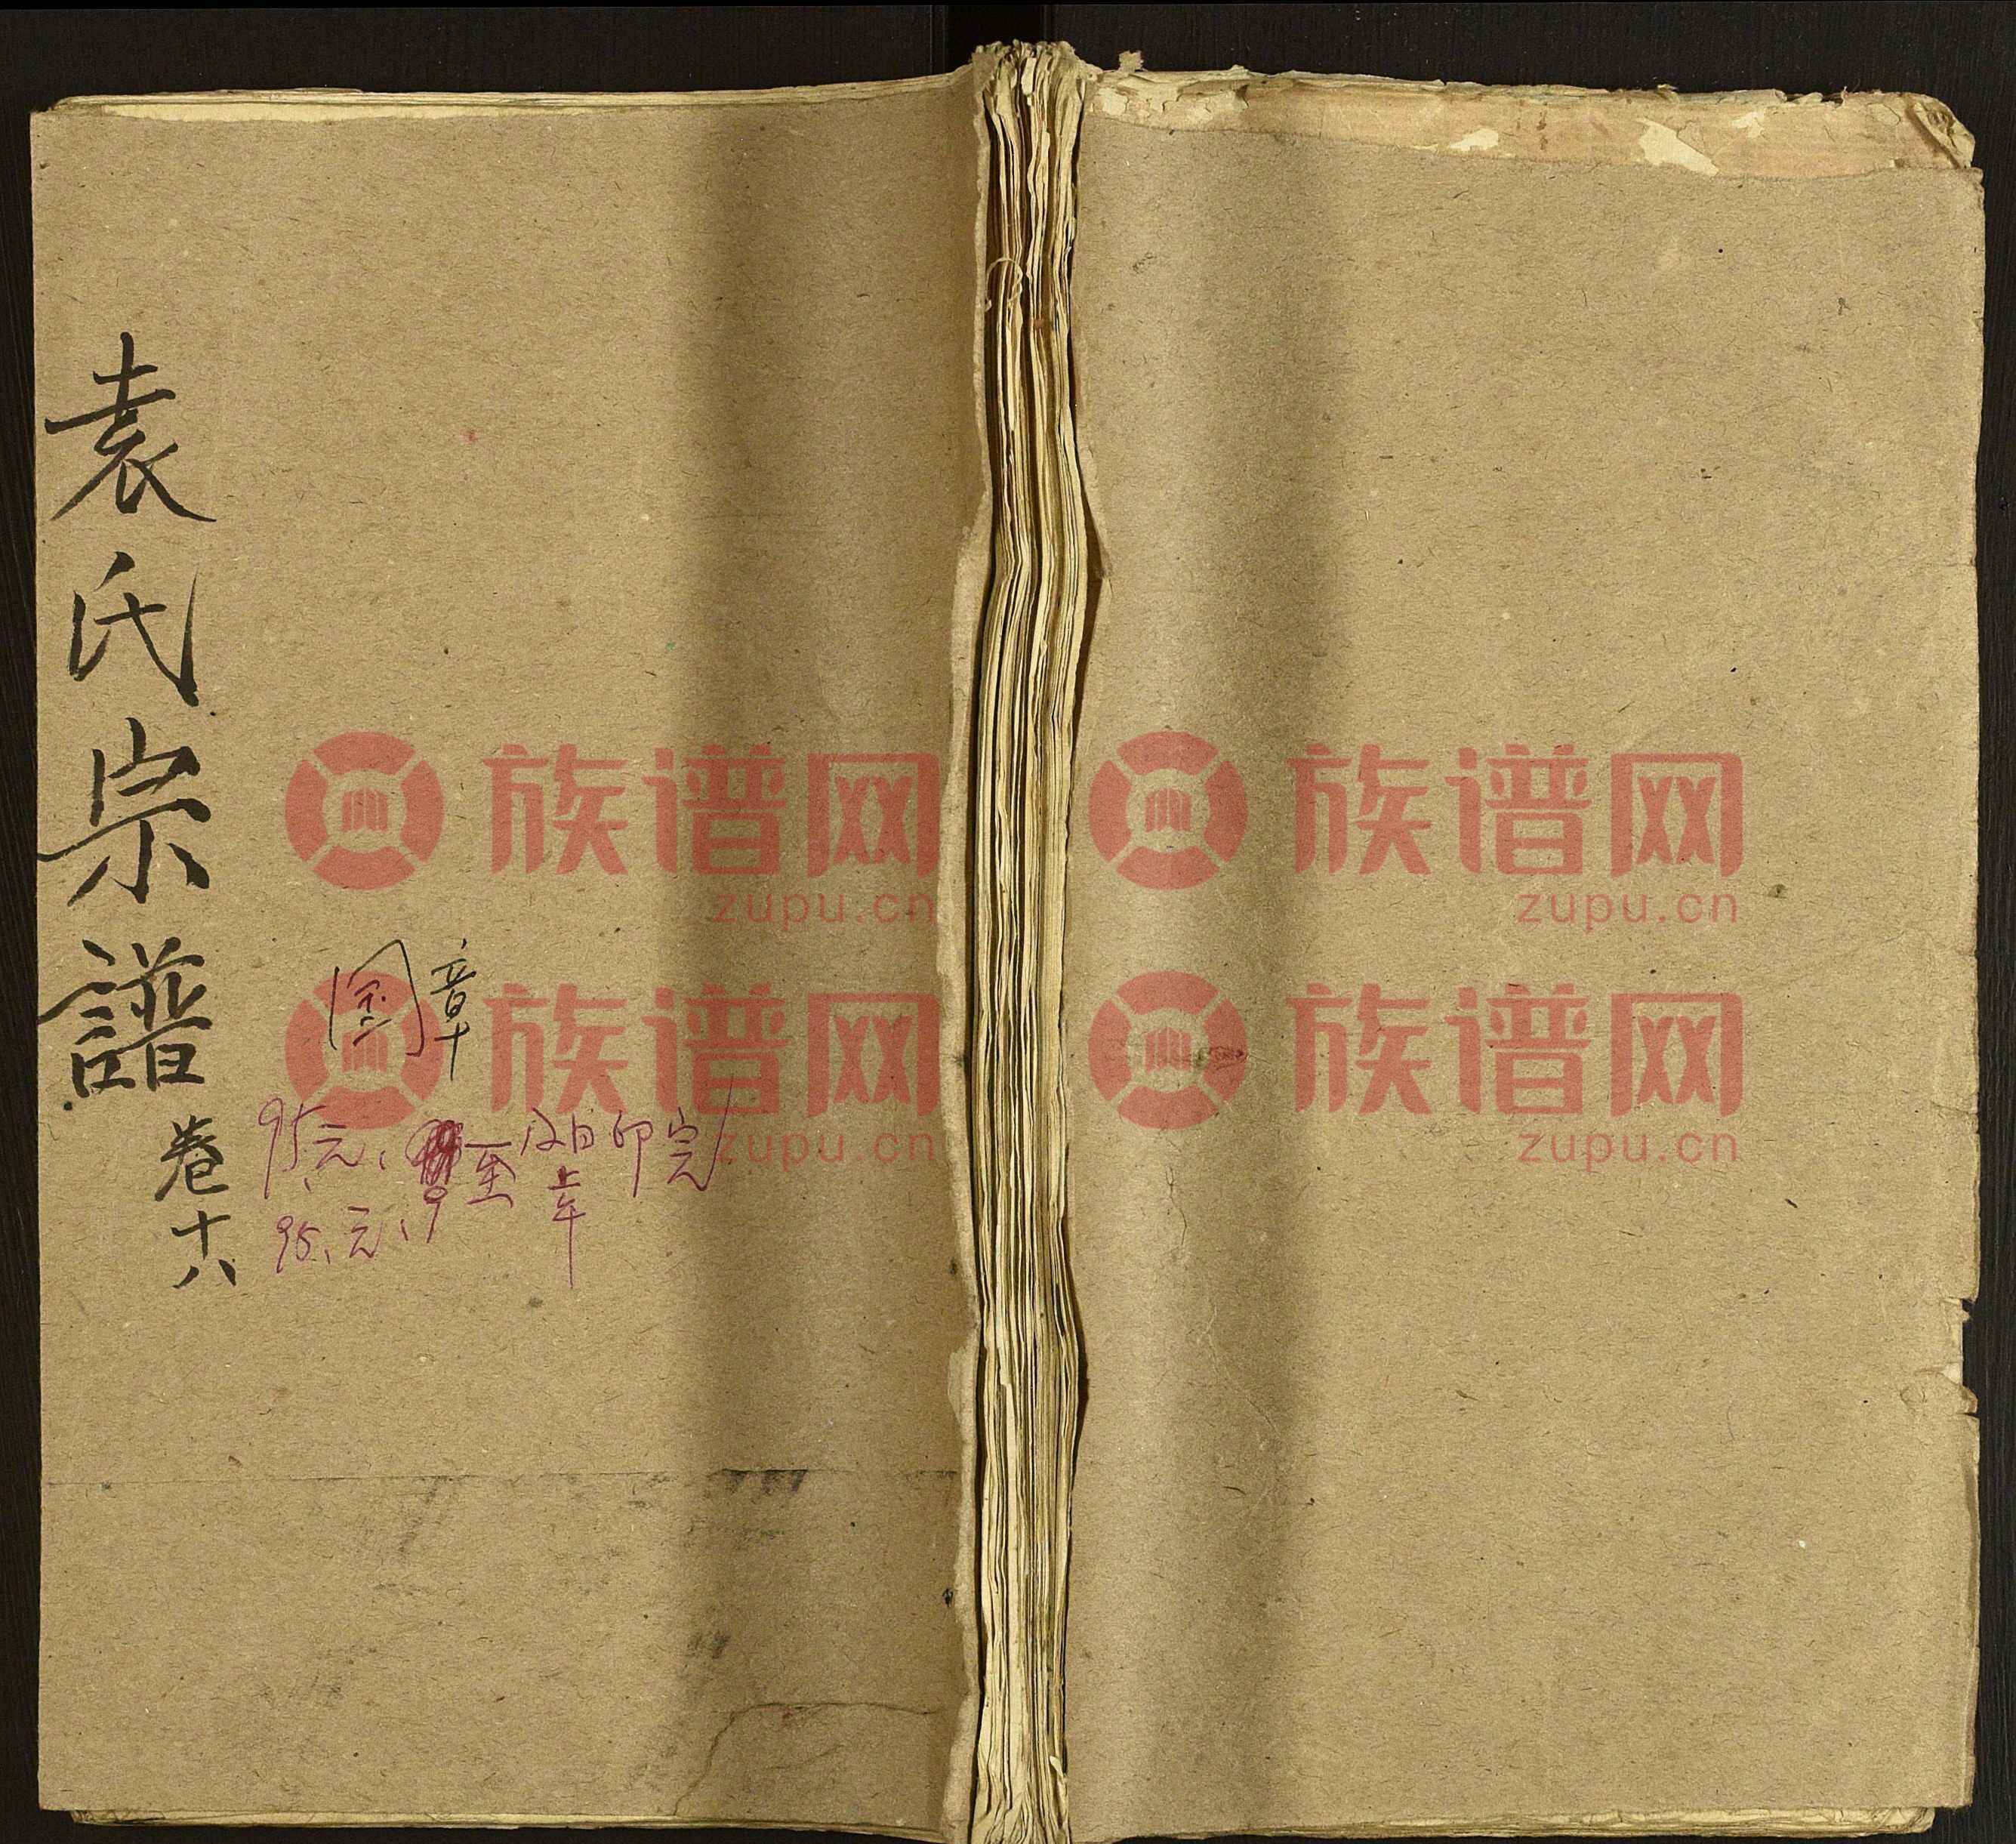 袁氏宗譜
卷十八
国章
95.元.9至 及白印完
上午
95.元.9
族谱网 族谱网
zupu.cn zupu.cn
族谱网 族谱网
zupu.cn zupu.cn